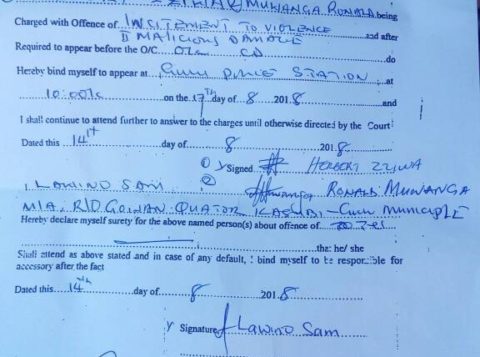 & MUWANGA RONALD being
Charged with Offence of INSITEMENT TO VIOLENCE and after
II MALICIOUS DAMAGE
Required to appear before the O/C CID do
Hereby bind myself to appear at GULU POLICE STATION at
10:00 on the 17th day of 8 2018 and
I shall continue to attend further to answer to the charges until otherwise directed by the Court
Dated this 14th day of 8 2018
① y Signed HERBERT ZZIWA
I LAWINO SAM ② RONALD MUWANGA
GULU MUNICIPLE
Hereby declare myself surety for the above named person(s) about offence of
that he/ she
Shall attend as above stated and in case of any default, I bind myself to be responsible for
accessory after the fact
Dated this 14th day of 8 2018
y Signature Lawino Sam